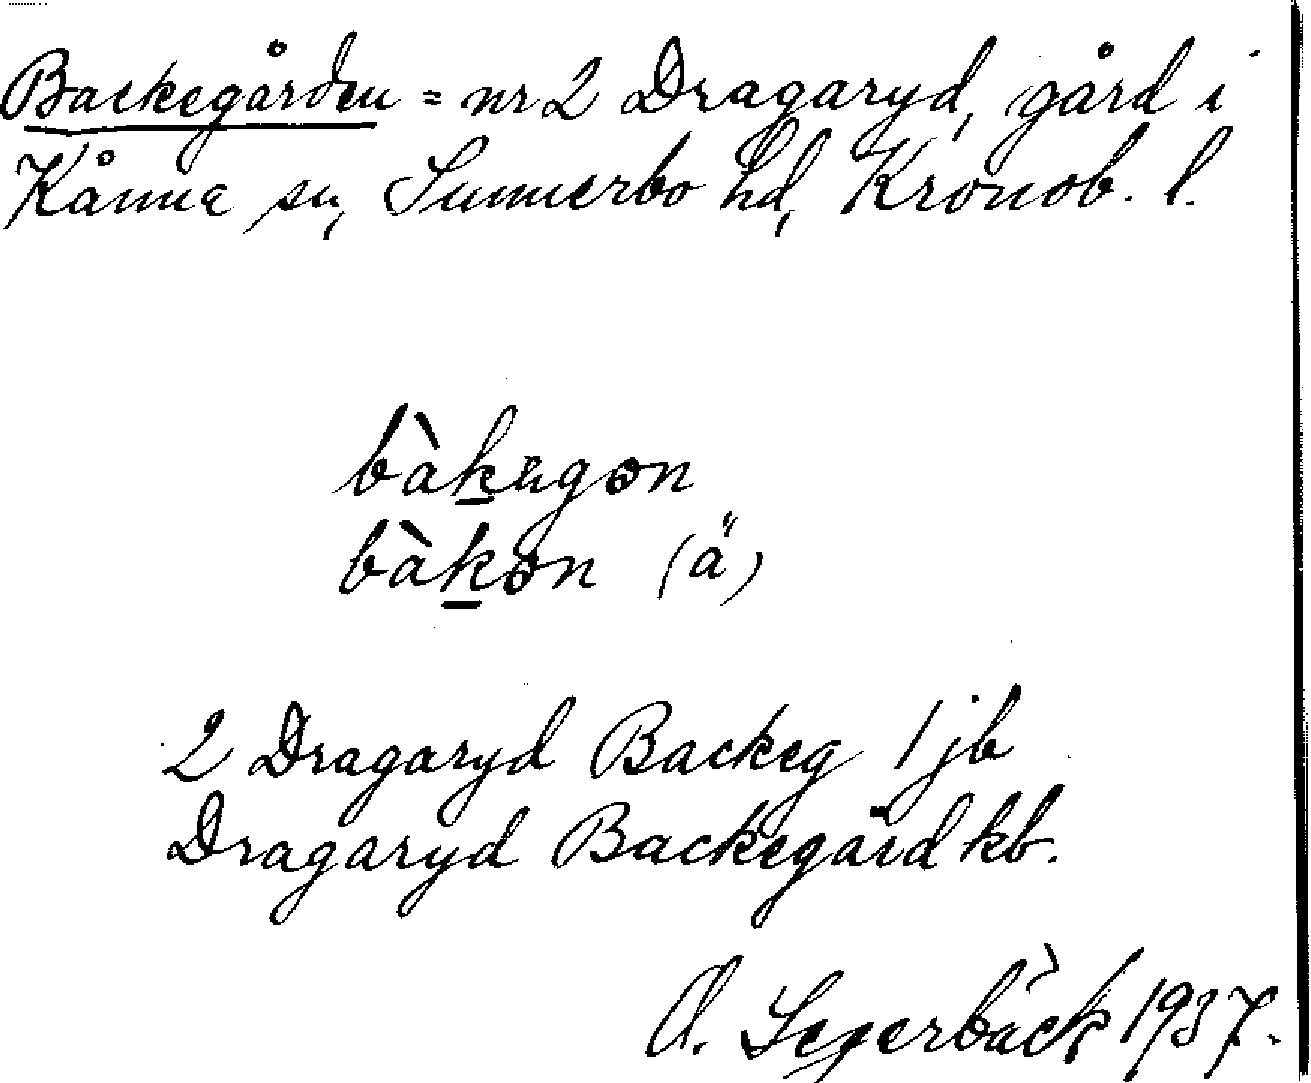 Backegården = nr 2 Dragaryd, gård i
Kånna sn, Sunnerbo hd, Kronob. l.
bàkagɵn
bàkɵn (ä)
2 Dragaryd Backeg 1 jb
Dragaryd Backegård kb.
O. Segerbäck 1937.